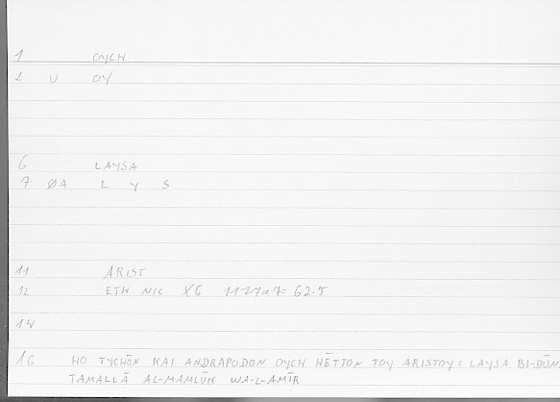 1 OYCH
2 U OY
6 LAYSA
7 ØA L Y S
11 ARIST
12 ETH NIC X6 1177a7: 62.5
14
16 HO TYCHŌN KAI ANDRAPODON OYCH HĒTTON TOY ARISTOY : LAYSA BI-DŪN
TAMALLĀ AL-MAMLŪK WA-L-AMĪR